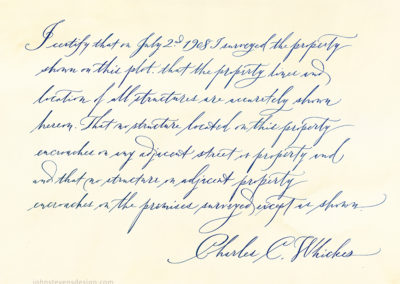 I certify that on July 2nd 1908 I surveyed the property
shown on this plot, that the property lines and
location of all structures are accurately shown
hereon. That no structure located on this property
encroaches on any adjacent street or property and
and that no structure on adjacent property
encroaches on the premises surveyed except as shown
Charles C. Whickes
johnstevensdesign.com